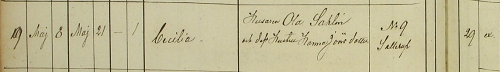 Husaren Ola Sahlin
19 Maj 8 Maj 21 — 1 Cecilia och dess Hustru Hanna Jöns dotter No 9 29